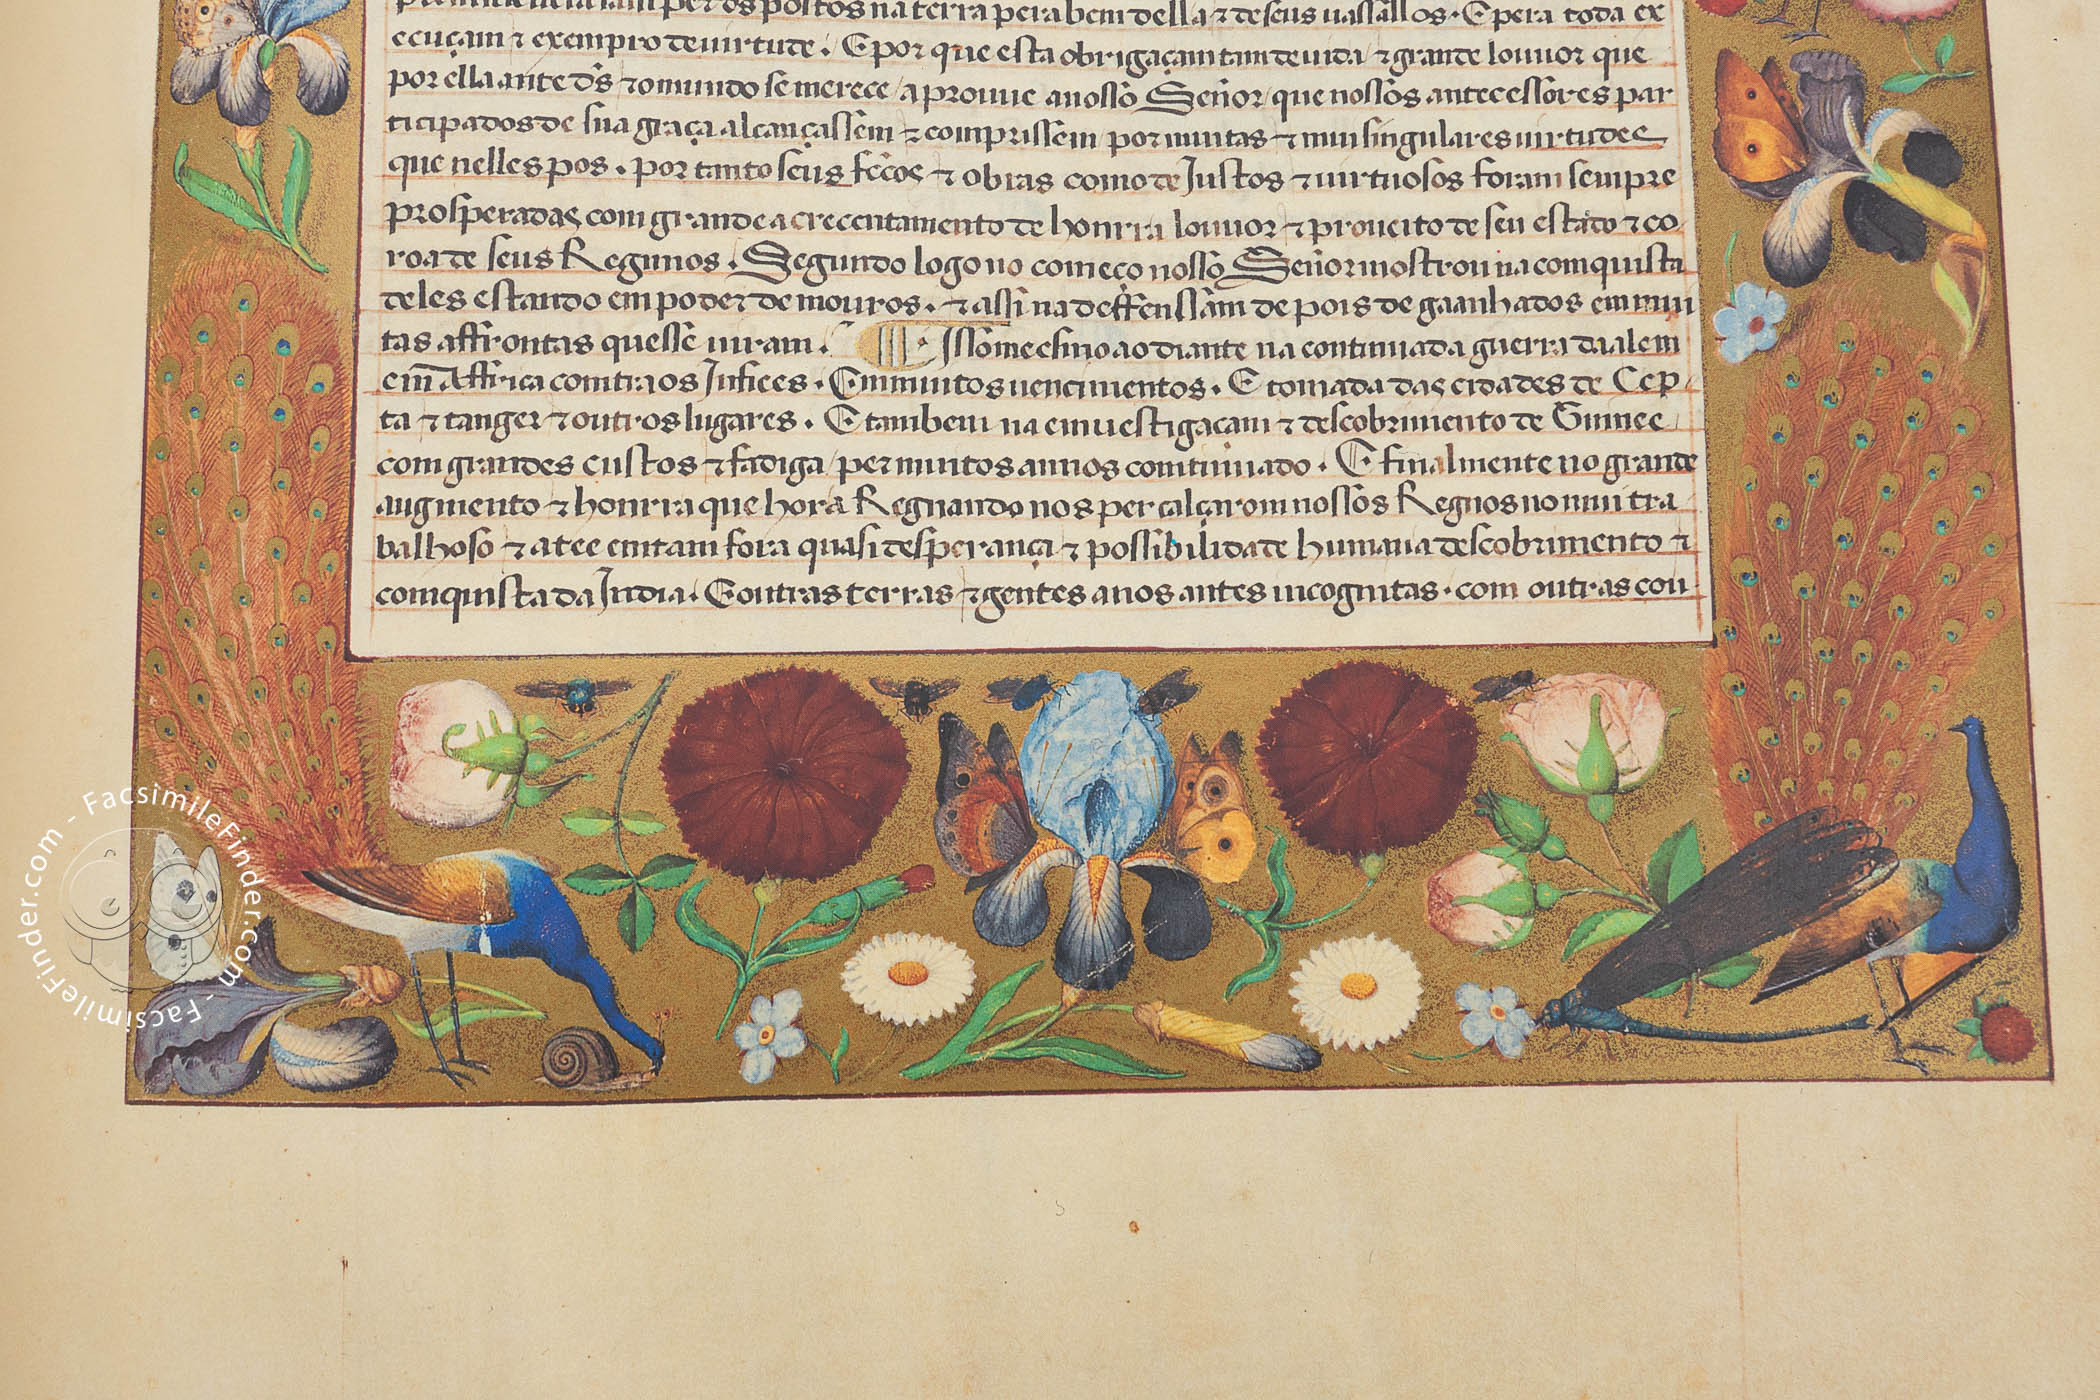 per dos postos na terra pera bem della ⁊ de seus uassallos. E pera toda ex
ecuçam ⁊ exempro de uirtude. E por que esta obrigaçam tam deuida ⁊ grande louuor que
por ella ante d's ⁊ o mundo se merece / aprouue a nosso Señor / que nossos antecessores par
ticipados de sua graça alcançassem ⁊ comprissem por muitas ⁊ mui singulares uirtudes
que nelles pos. por tanto seus fectos ⁊ obras como de Justos ⁊ uirtuosos foram sempre
prosperadas com grande acrecentamento de honrra louuor ⁊ proueito de seu estado ⁊ co
roa de seus Regnnos. Segundo logo no começo nosso Señor mostrou na comquista
deles estando em poder de mouros. ⁊ assi na deffenssam depois de gaanhados em mui
tas affrontas que sse uiram. Isso mesmo ao diante na continuada guerra daalem
em Affrica comtra os Jnfiees. Em muitos uencimentos. E tomada das cidades de Cep
ta ⁊ tanger ⁊ outros lugares. E tambem na emuestigacam ⁊ descobrimento de Guinee
com grandes custos ⁊ fadiga / per muitos annos comtinuado. E finalmente no grande
augmento ⁊ honrra que hora Regnando nos percalçarom nossos Regnos no mui tra
balhoso ⁊ atee emtam fora quasi desperança ⁊ possibilidade humana descobrimento ⁊
comquista da Jndia. E outras terras ⁊ gentes a nos antes incognitas. com outras cou
FacsimileFinder.com - FacsimileFinder.com - FacsimileFinder.com